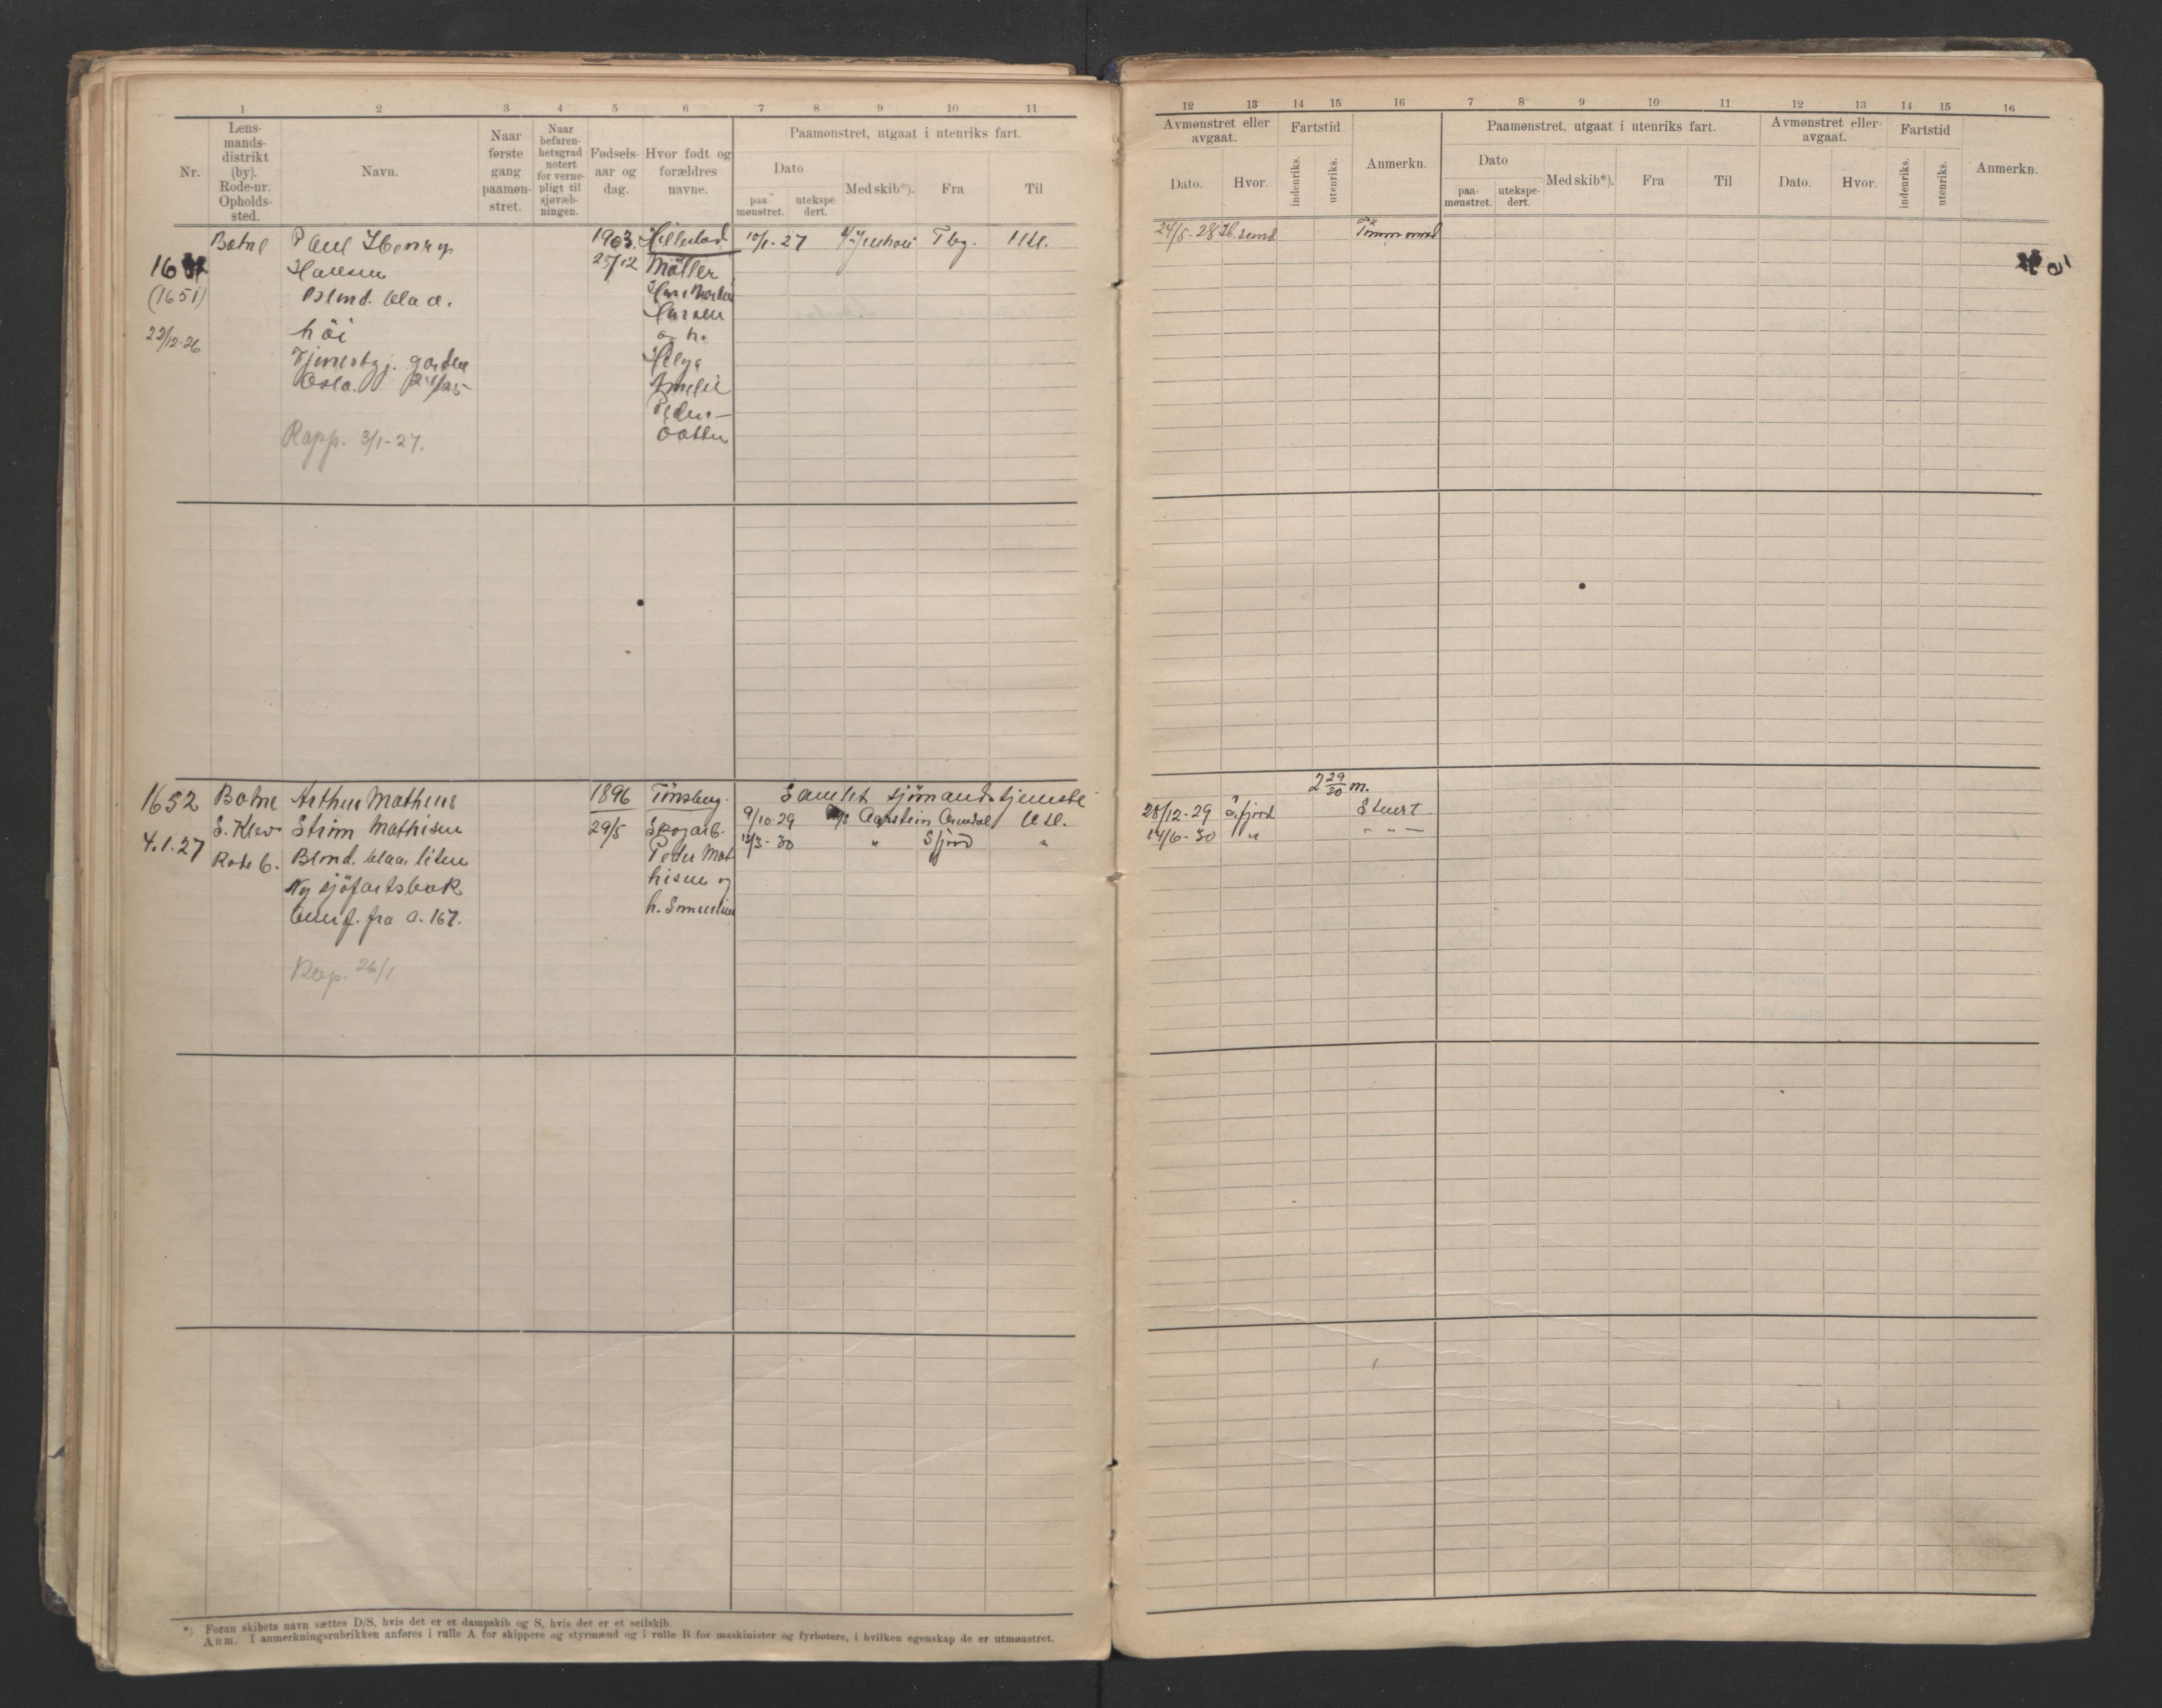 1 2 3 4 5 6 7 8 9 10 11
Nr.
Lens-
mands-
distrikt
(by).
Rode-nr.
Opholds-
sted.
Navn.
Naar
første
gang
paamøn-
stret.
Naar
befaren-
hetsgrad
notert
for verne-
pligt til
sjøvæb-
ningen.
Fødsels-
aar og
dag.
Hvor født og
forældres
navne.
Paamønstret, utgaat i utenriks fart.
Dato
paa-
mønstret.
utekspe-
dert.
Med skib*).
Fra
Til
1651
(1651)
22/12-26
Botne
Paul Henry
Hansen
Blond. blaa.
høi
Oslo.
Rapp. 3/1-27.
1903.
25/12
Hillestad
Møller
Hans
Hansen
og h.
Helga
Amelie
Peders-
datter
10/1-27
Tbg.
Utl.
1652
4.1.27
Botne
S. Klev
Rode 6.
Arthur Matheus
Strøm Mathisen
Blond. blaa. liten
Ny sjøfartsbok
Overf. fra a. 167.
Rap. 26/1
1896
29/5
Tønsberg.
Skogarb.
Peder Mat
hisen og
h.
Samlet sjømandstjeneste
9/10-29 Arendal Utl.
12/3-30 " Sfjord "
*) Foran skibets navn sættes D/S, hvis det er et dampskib og S, hvis det er et seilskib.
Anm. I anmerkningsrubrikken anføres i rulle A for skippere og styrmænd og i rulle B for maskinister og fyrbøtere, i hvilken egenskap de er utmønstret.
12 13 14 15 16 7 8 9 10 11 12 13 14 15 16
Avmønstret eller
avgaat.
Dato.
Hvor.
Fartstid
indenriks.
utenriks.
Anmerkn.
Paamønstret, utgaat i utenriks fart.
Dato
paa-
mønstret.
utekspe-
dert.
Med skib*).
Fra
Til
Avmønstret eller
avgaat.
Dato.
Hvor.
Fartstid
indenriks.
utenriks.
Anmerkn.
24/5-28 H.sund Tømmermand
2 29/30 m.
28/12-29 S.fjord Stuert
14/6-30 " " —